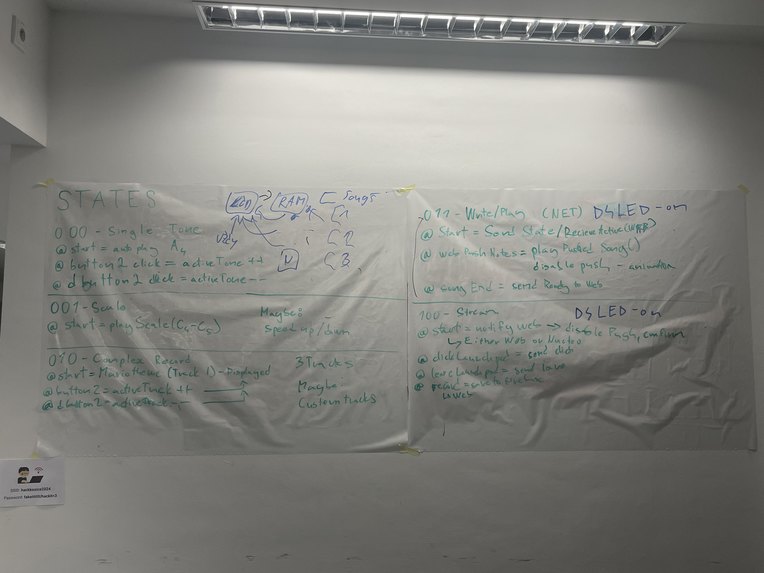 STATES
000 - Single Tone
@ start = autoplay A4
@ button2 click = activeTone ++
@ d button2 click = activeTone --
RAM
Songs
C1
C2
C3
001 - Scale
@ start = playScale(C4-C5)
Maybe:
speed up/down
010 - Complex Record
@ start = Mario theme (Track 1) - Displayed
@ button2 = activeTrack ++
@ d button2 = activeTrack --
3 Tracks
Maybe:
Custom tracks
011 - Write/Play (NET) D4 LED - on
@ Start = Send State/
@ Web Push Notes = play Pushed Song()
disable push - animation
@ song End = send Ready to Web
100 - Stream D4 LED - on
@ start = notify web → disable Push, confirm
↳ Either Web or Nucleo
@ click Launchpad = send click
@
@
SSID: hacktouza2024
Password: